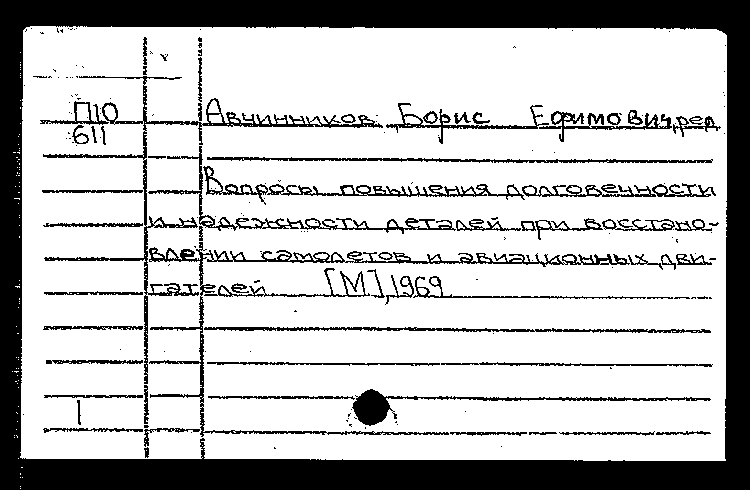 П10 Авчинников Борис Ефимович, ред.
611
Вопросы повышения долговечности
и надежности деталей при восстано-
влении самолетов и авиационных дви-
гателей [М], 1969
1